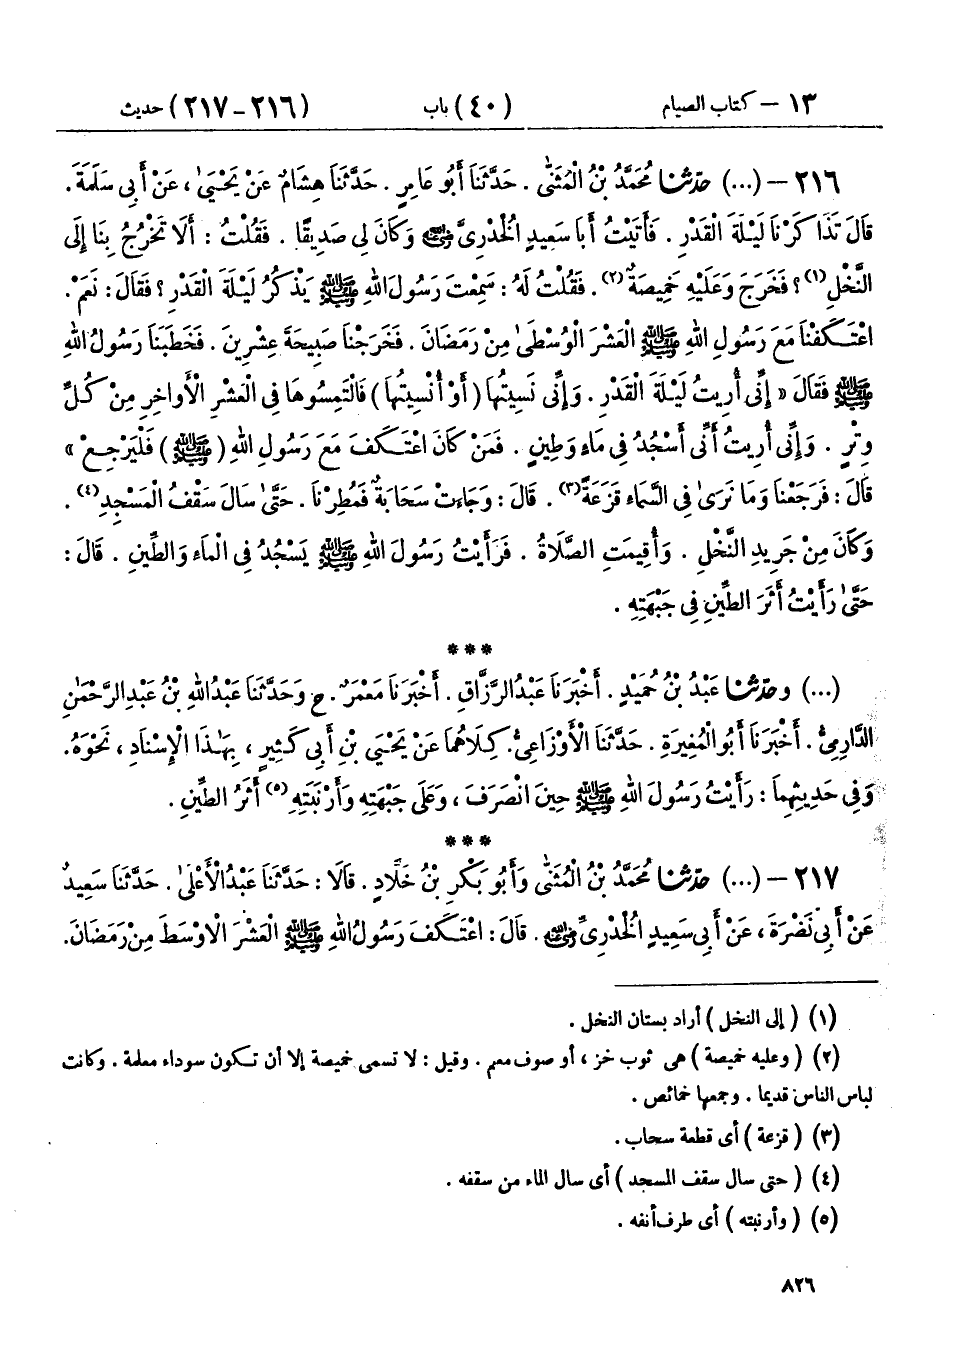 ١٣ – كتاب الصيام (٤٠) باب (٢١٦-٢١٧) حديث
٢١٦ – (...) حَدَّثَنَا مُحَمَّدُ بْنُ الْمُثَنَّىٰ . حَدَّثَنَا أَبُو عَامِرٍ . حَدَّثَنَا هِشَامٌ عَنْ يَحْيَىٰ ، عَنْ أَبِى سَلَمَةَ .
قَالَ تَذَاكَرْنَا لَيْلَةَ الْقَدْرِ . فَأَتَيْتُ أَبَا سَعِيدٍ الْخُدْرِىَّ رضي الله عنه وَكَانَ لِى صَدِيقًا . فَقُلْتُ : أَلَا تَخْرُجُ بِنَا إِلَى
النَّخْلِ (١) ؟ فَخَرَجَ وَعَلَيْهِ خَمِيصَةٌ (٢) . فَقُلْتُ لَهُ : سَمِعْتَ رَسُولَ اللهِ ﷺ يَذْكُرُ لَيْلَةَ الْقَدْرِ ؟ فَقَالَ : نَعَمْ .
اعْتَكَفْنَا مَعَ رَسُولِ اللهِ ﷺ الْعَشْرَ الْوُسْطَىٰ مِنْ رَمَضَانَ . فَخَرَجْنَا صَبِيحَةَ عِشْرِينَ . فَخَطَبَنَا رَسُولُ اللهِ
ﷺ فَقَالَ « إِنِّى أُرِيتُ لَيْلَةَ الْقَدْرِ . وَإِنِّى نَسِيتُهَا ( أَوْ أُنْسِيتُهَا ) فَالْتَمِسُوهَا فِى الْعَشْرِ الْأَوَاخِرِ مِنْ كُلِّ
وِتْرٍ . وَإِنِّى أُرِيتُ أَنِّى أَسْجُدُ فِى مَاءٍ وَطِينٍ . فَمَنْ كَانَ اعْتَكَفَ مَعَ رَسُولِ اللهِ ( ﷺ ) فَلْيَرْجِعْ »
قَالَ : فَرَجَعْنَا وَمَا نَرَىٰ فِى السَّمَاءِ قَزَعَةً (٣) . قَالَ : وَجَاءَتْ سَحَابَةٌ فَمُطِرْنَا . حَتَّىٰ سَالَ سَقْفُ الْمَسْجِدِ (٤) .
وَكَانَ مِنْ جَرِيدِ النَّخْلِ . وَأُقِيمَتِ الصَّلَاةُ . فَرَأَيْتُ رَسُولَ اللهِ ﷺ يَسْجُدُ فِى الْمَاءِ وَالطِّينِ . قَالَ :
حَتَّىٰ رَأَيْتُ أَثَرَ الطِّينِ فِى جَبْهَتِهِ .
***
(...) وحَدَّثَنَا عَبْدُ بْنُ حُمَيْدٍ . أَخْبَرَنَا عَبْدُ الرَّزَّاقِ . أَخْبَرَنَا مَعْمَرٌ . ح وَحَدَّثَنَا عَبْدُ اللهِ بْنُ عَبْدِ الرَّحْمَٰنِ
الدَّارِمِىُّ . أَخْبَرَنَا أَبُو الْمُغِيرَةِ . حَدَّثَنَا الْأَوْزَاعِىُّ . كِلَاهُمَا عَنْ يَحْيَى بْنِ أَبِى كَثِيرٍ ، بِهَٰذَا الْإِسْنَادِ ، نَحْوَهُ .
وَفِى حَدِيثِهِمَا : رَأَيْتُ رَسُولَ اللهِ ﷺ حِينَ انْصَرَفَ ، وَعَلَى جَبْهَتِهِ وَأَرْنَبَتِهِ (٥) أَثَرُ الطِّينِ .
***
٢١٧ – (...) حَدَّثَنَا مُحَمَّدُ بْنُ الْمُثَنَّىٰ وَأَبُو بَكْرِ بْنُ خَلَّادٍ . قَالَا : حَدَّثَنَا عَبْدُ الْأَعْلَىٰ . حَدَّثَنَا سَعِيدٌ
عَنْ أَبِى نَضْرَةَ ، عَنْ أَبِى سَعِيدٍ الْخُدْرِىِّ رضي الله عنه . قَالَ : اعْتَكَفَ رَسُولُ اللهِ ﷺ الْعَشْرَ الْأَوْسَطَ مِنْ رَمَضَانَ .
(١) ( إلى النخل ) أراد بستان النخل .
(٢) ( وعليه خميصة ) هى ثوب خز ، أو صوف معلم . وقيل : لا تسمى خميصة إلا أن تكون سوداء معلمة . وكانت
لباس الناس قديما . وجمعها خمائص .
(٣) ( قزعة ) أى قطعة سحاب .
(٤) ( حتى سال سقف المسجد ) أى سال الماء من سقفه .
(٥) ( وأرنبته ) أى طرف أنفه .
٨٢٦